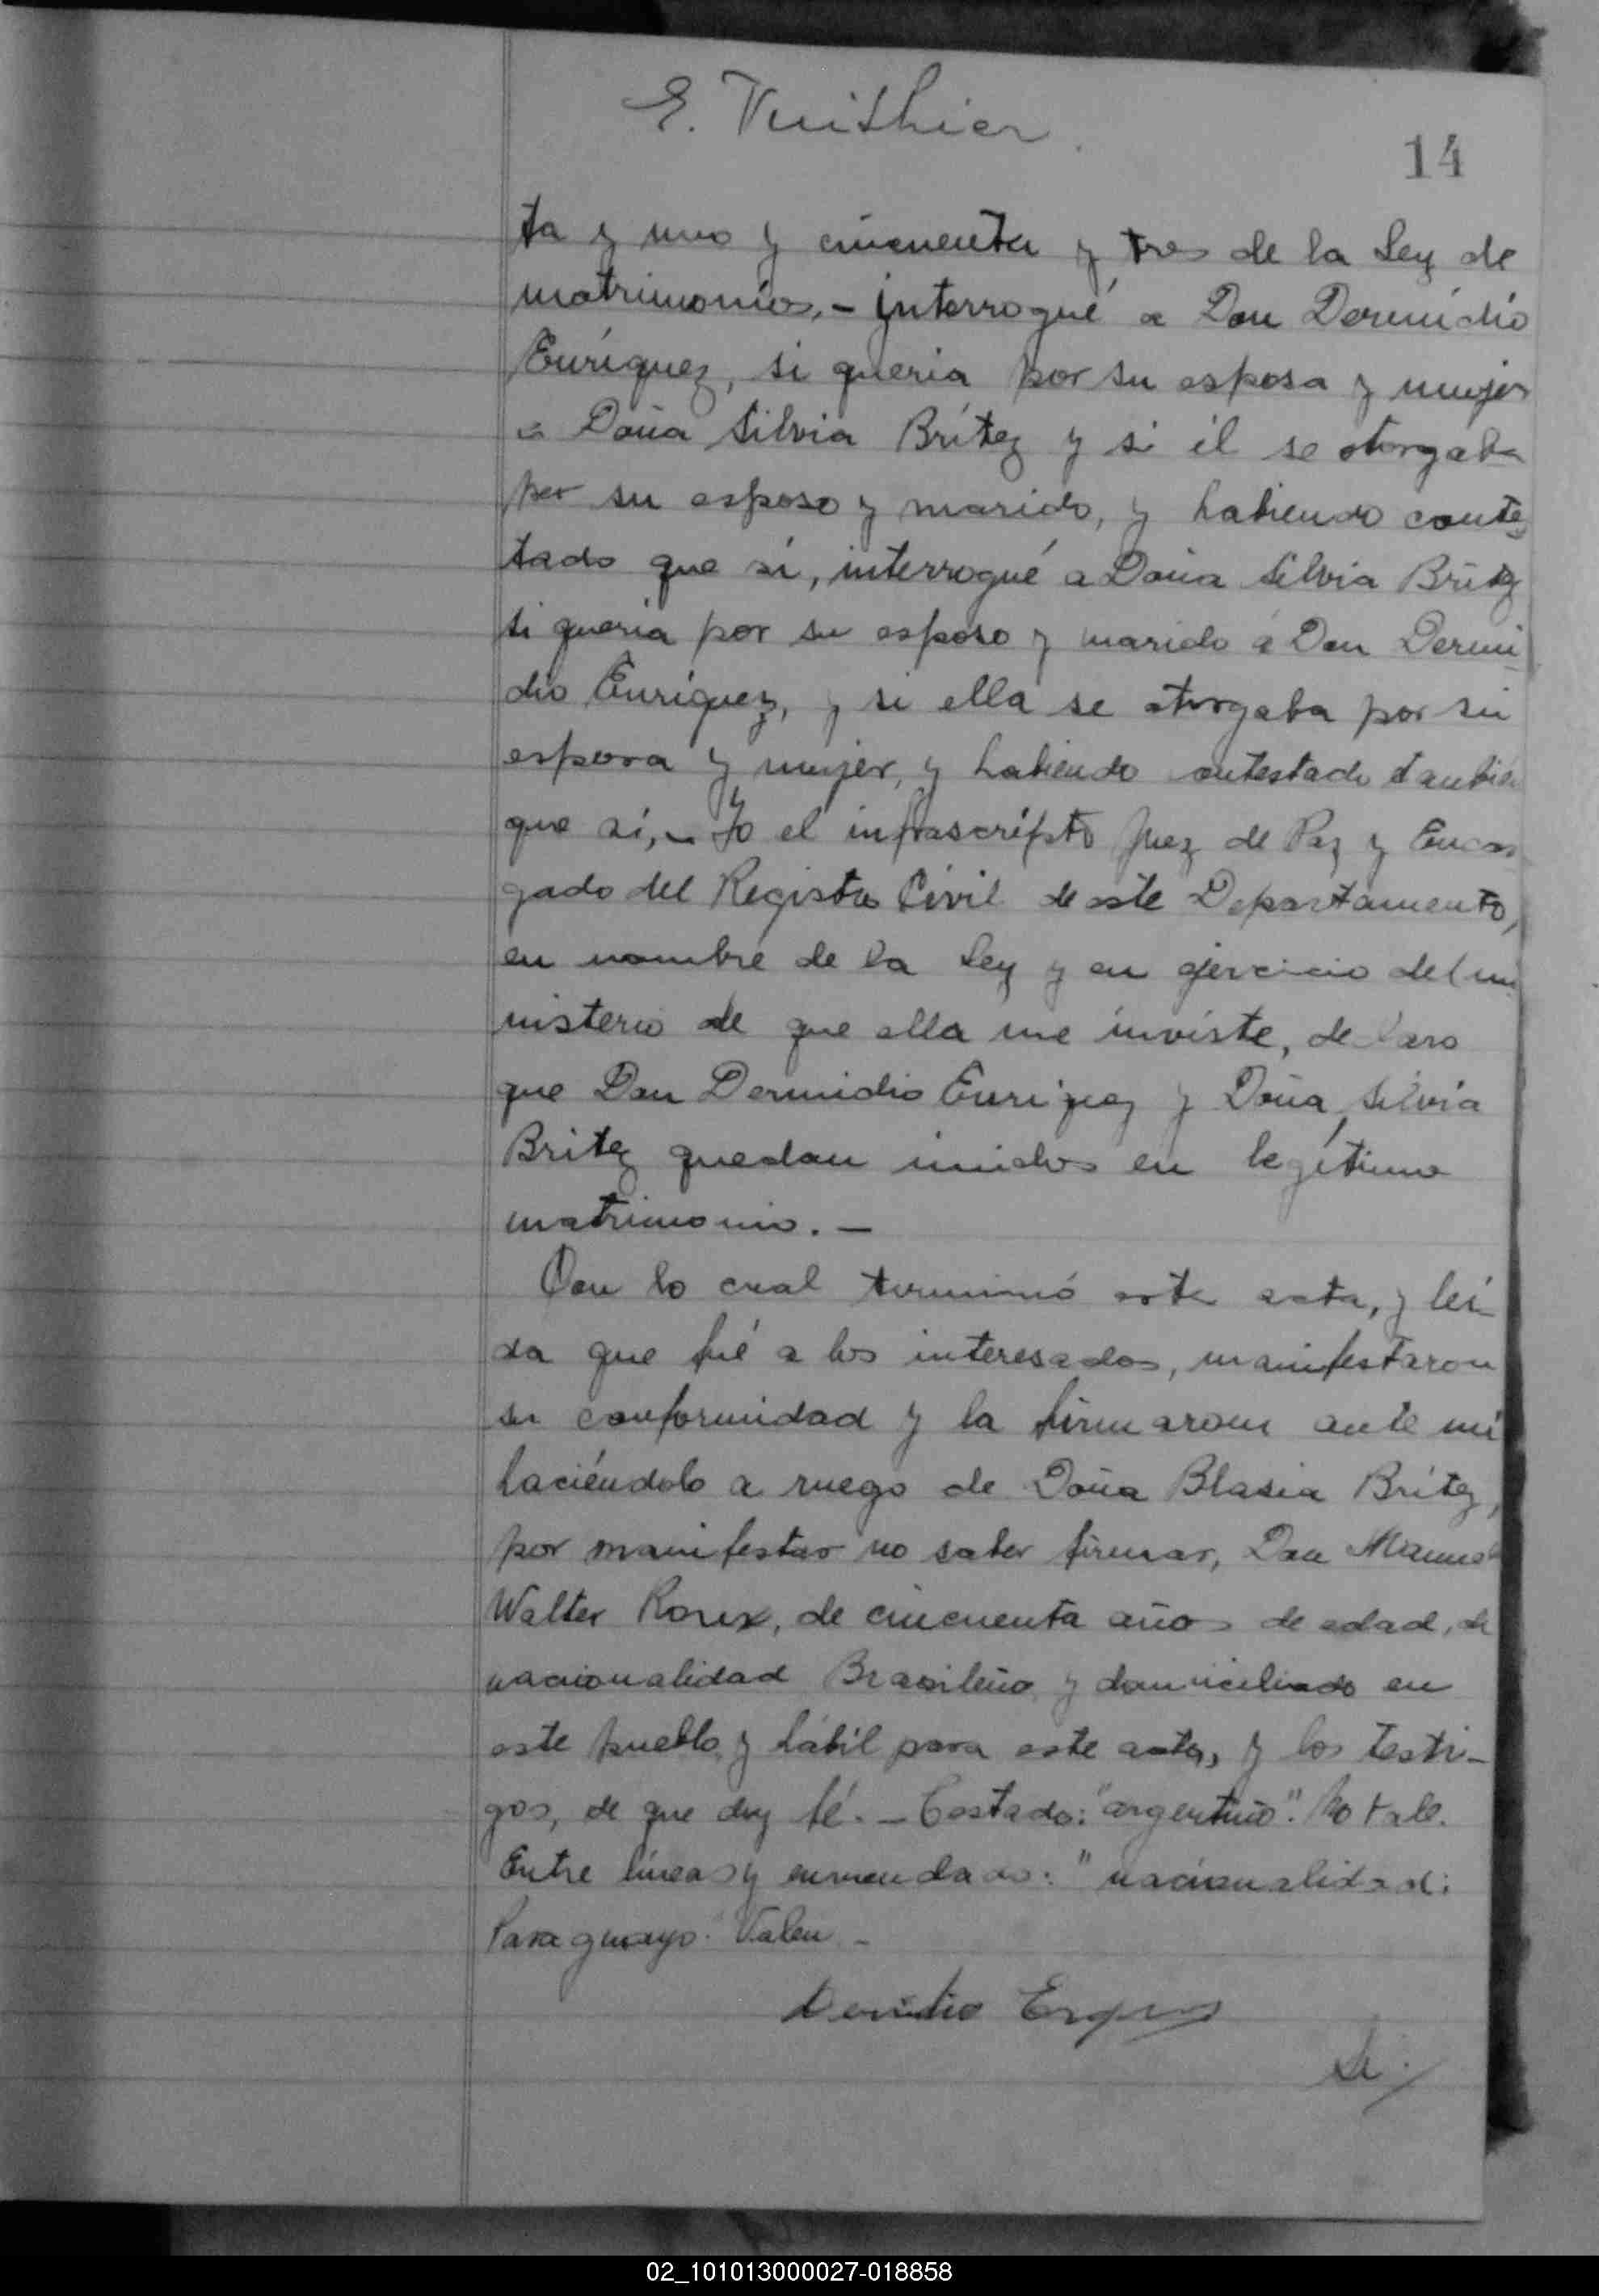 E. Vuithier
14
ta y uno y cincuenta y tres de la Ley de
matrimonios, - interrogué a Don Dermidio
Enríquez, si queria por su esposa y mujer
a Doña Silvia Brítez y si él se otorgaba
por su esposo y marido, y habiendo contes
tado que sí, interrogué a Doña Silvia Britez
si queria por su esposo y marido á Don Dermi
dio Enríquez, y si ella se otorgaba por su
esposa y mujer, y habiendo contestado también
que sí, - Yo el infrascripto Juez de Paz y Encar
gado del Registro Civil de este Departamento,
en nombre de la Ley y en ejercicio del mi
nisterio de que ella me inviste, declaro
que Don Dermidio Enriquez y Doña Silvia
Britez quedan unidos en legítimo
matrimonio. -
Con lo cual terminó este acta, y leí
da que fué a los interesados, manifestaron
su conformidad y la firmaron ante mí
haciéndolo a ruego de Doña Blasia Brítez,
por manifestar no saber firmar, Don Manuel
Walter Roux, de cincuenta años de edad, de
nacionalidad Brasileño y domiciliado en
este pueblo y hábil para este acto, y los testi-
gos, de que doy fé. - Testado: "argentino". No vale.
Entre líneas y enmendado: "nacionalidad:
Paraguayo. Valen -